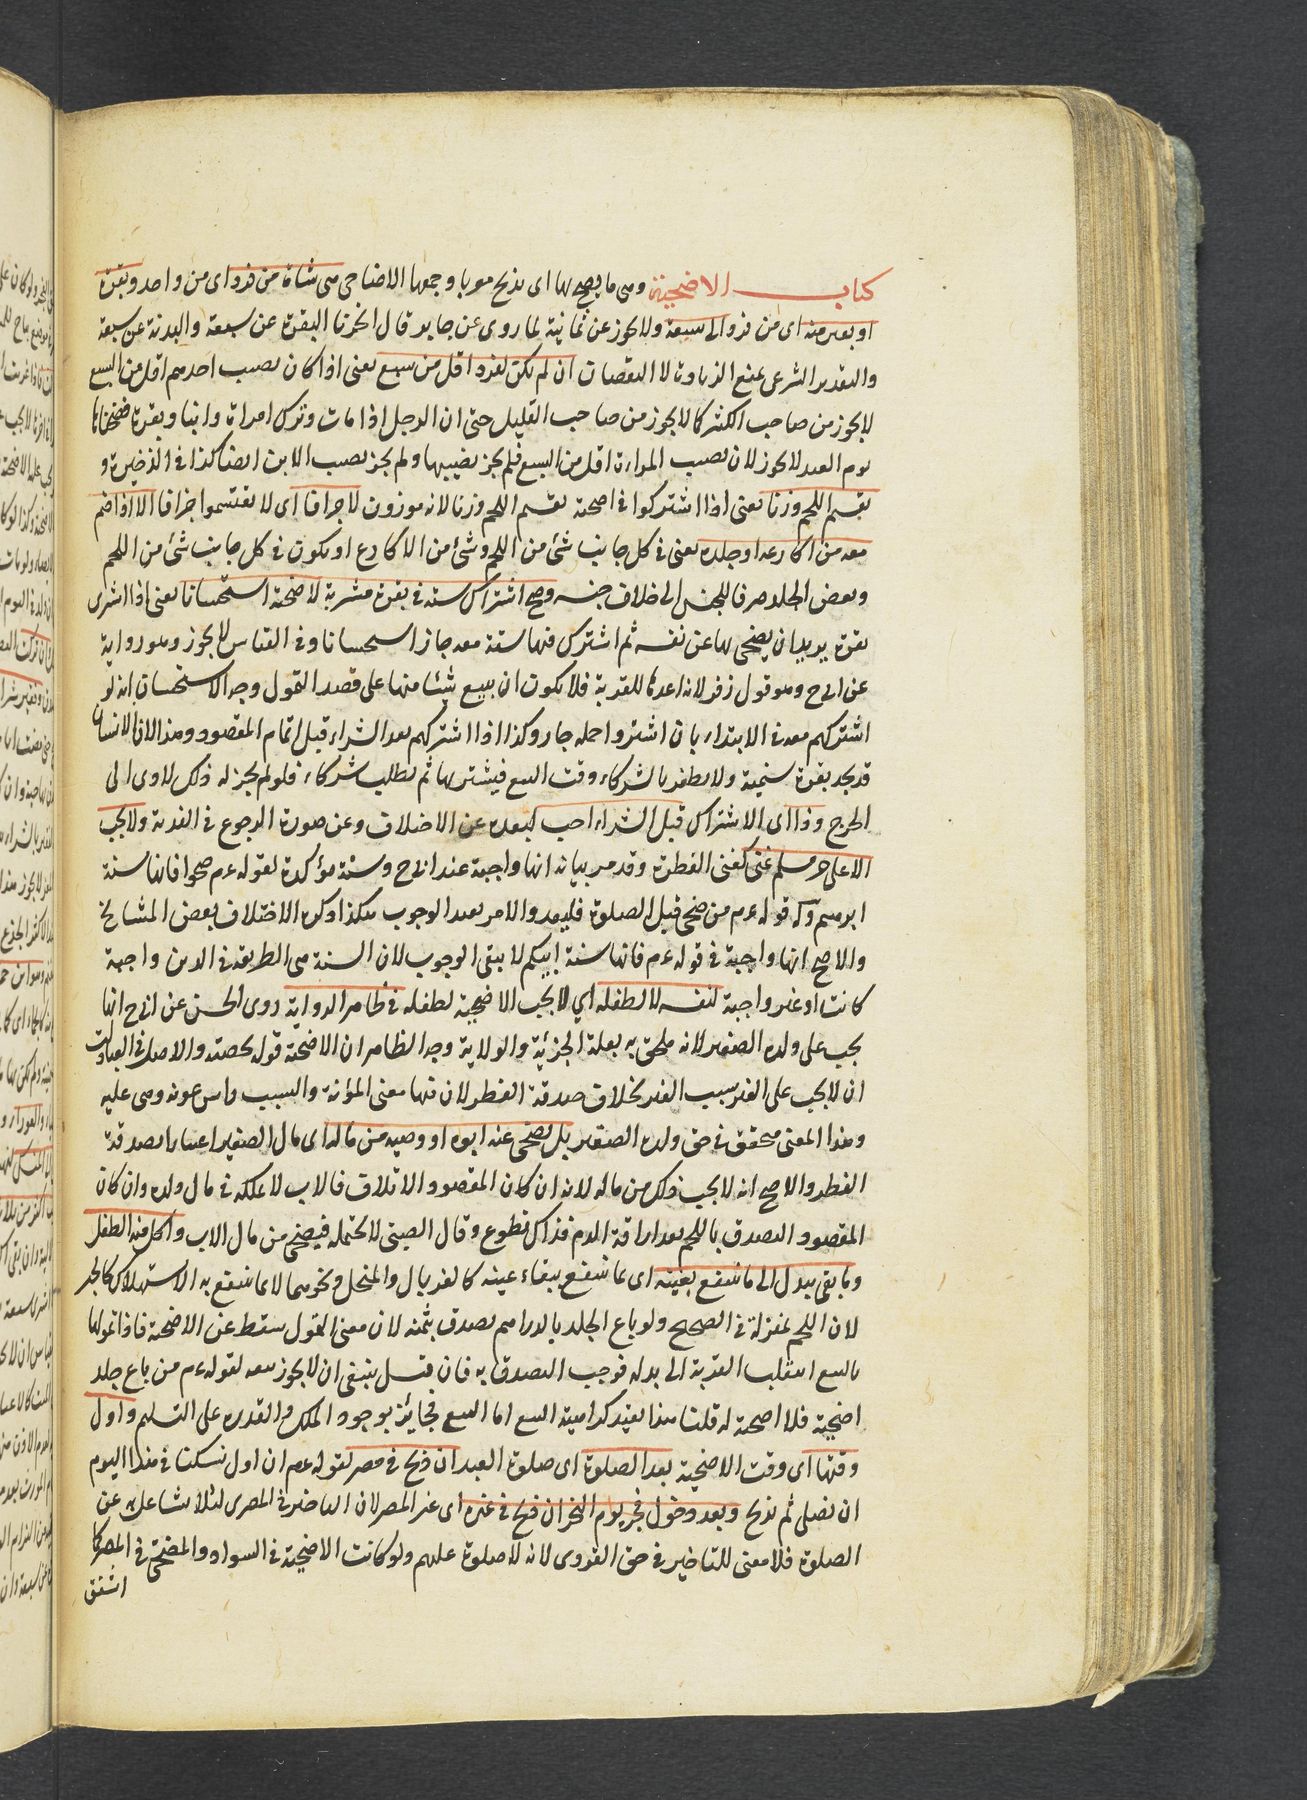 كتاب الاضحية وهى ما يضحى بها اى يذبح مو وجمعها الاضاحى هى شاة من فرد اى من واحد وبقرة
او بعير منه اى من فرد الى سبعة ولا يجوز عن ثمانية لما روى عن جابر قال نحرنا البقرة عن سبعة والبدنة عن سبعة
والتقدير الشرعى يمنع الزيادة لا النقصان ان لم يكن لفرد اقل من سبع يعنى اذا كان نصيب احدهم اقل من السبع
لا يجوز من صاحب الكثير كما لا يجوز من صاحب القليل حتى ان الرجل اذا مات وترك امراة وابنا وبقرة فضحيا بها
يوم العيد لا يجوز لان نصيب المراءة اقل من السبع فلم يجز نصيبها ولم يجز نصيب الابن ايضا كذا فى الذخيرة و
يقسم اللحم وزنا يعنى اذا اشتركوا فى اضحية يقسم اللحم وزنا لانه موزون لا جزافا اى لا يقتسموا جزافا الا اذا ضم
معه من اكارعه او جلده يعنى فى كل جانب شئ من اللحم وشئ من الاكارع او يكون فى كل جانب شئ من اللحم
وبعض الجلد صرفا للجنس الى خلاف جنسه وصح اشتراك ستة فى بقرة مشرية لاضحية استحسانا يعنى اذا اشترى
بقرة يريد ان يضحى بها عن نفسه ثم اشترك فيها ستة معه جاز استحسانا وفى القياس لا يجوز وهو رواية
عن ابى ح وهو قول زفر لانه اعدها للقربة فلا يكون ان يبيع شيئا منها على قصد التمول وجه الاستحسان انه لو
اشتركهم معه فى الابتداء بان اشتروا جمله جاز وكذا اذا اشتركهم بعد الشراء قبل اتمام المقصود وهذا لان الانسان
قد يجد بقرة سمينة ولا يظفر بالشركاء وقت البيع فيشتريها ثم يطلب شركاء فلو لم يجز له ذلك لادى الى
الحرج وذا اى الاشتراك قبل الشراء احب ليبعد عن الاختلاف وعن صورة الرجوع فى القربة ولا يجب
الا على حر مسلم غنى كغنى الفطرة وقد مر بيانه انها واجبة عند ابى ح وسنة مؤكدة لقوله عم ضحوا فانها سنة
ابرهيم وله قوله عم من ضحى قبل الصلوة فليعد والامر يفيد الوجوب هكذا ذكره الاختلاف بعض المشايخ
والاصح انها واجبة فى قوله عم فانها سنة ابيكم لا ينفى الوجوب لان السنة هى الطريقة فى الدين واجبة
كانت او غير واجبة لنفسه لا لطفله اي لا يجب الاضحية لطفله فى ظاهر الرواية روى الحسن عن ابى ح انها
يجب على ولده الصغير لانه ملحق به بعلة الجزئية والولاية وجه الظاهر ان الاضحية قربة محضة والاصل فى العبادات
ان لا يجب على الغير بسبب الغير بخلاف صدقة الفطر لان فيها معنى المؤنة والسبب راس يمونه ويلى عليه
وهذا المعنى محقق فى حق ولده الصغير بل يضحى عنه ابوه او وصيه من ماله اى مال الصغير اعتبارا بصدقة
الفطر والاصح انه لا يجب ذلك من ماله لانه ان كان المقصود الاتلاف فالاب لا يملكه فى مال ولده وان كان
المقصود التصدق باللحم بعد اراقة الدم فذاك تطوع وقال الصبى لا يحتمله فيضحى من مال الاب واكل منه الطفل
وما بقى يبدل الى ما ينتفع بعينه اى بما ينتفع ببقاء عينه كالغربال والمنخل ونحوهما لا بما ينتفع به الاستهلاك كالجلد
لان اللحم بمنزلة فى الصحيح ولو باع الجلد بالدراهم يصدق بثمنه لان معنى التمول سقط عن الاضحية فاذا تمولها
بالبيع انتقلت القربة الى بدله فوجب التصدق به فان قيل ينبغى ان لا يجوز بيعه لقوله عم من باع جلد
اضحية فلا اضحية له قلنا هذا يفيد كراهية البيع اما البيع فجائز لوجود الملك والقدرة على التسليم واول
وقتها اى وقت الاضحية بعد الصلوة اى صلوة العيد ان ذبح فى مصر لقوله عم ان اول نسكنا فى هذا اليوم
ان نصلى ثم نذبح وبعد دخول فجر يوم النحر ان ذبح فى غيره اى غير المصر لان التاخير فى المصرى لئلا يتشاغل به عن
الصلوة فلا معنى للتاخير فى حق القروى لانه لا صلوة عليهم ولو كانت الاضحية فى السواد والمضحى فى المصر كما
اشفق